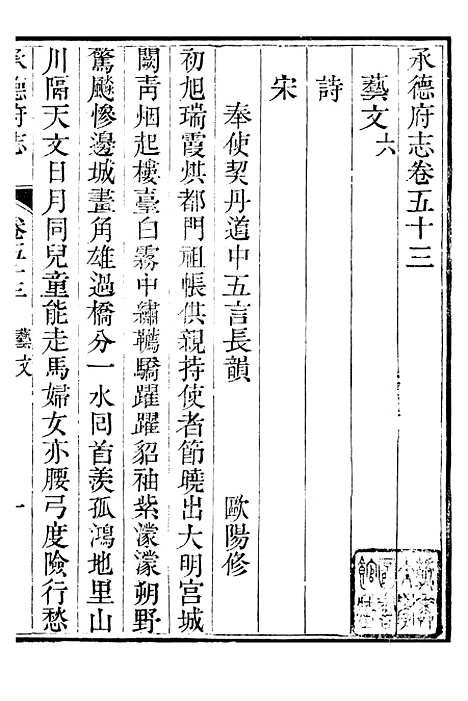 承德府志卷五十三
藝文六
詩
宋
奉使契丹道中五言長韻 歐陽修
初旭瑞霞烘都門祖帳供親持使者節曉出大明宮城
闕青烟起樓臺白霧中繡韉驕躍躍貂袖紫濛濛朔野
驚飈慘邊城畫角雄過橋分一水回首羨孤鴻地里山
川隔天文日月同兒童能走馬婦女亦腰弓度險行愁
承德府志 卷五十三 藝文 一